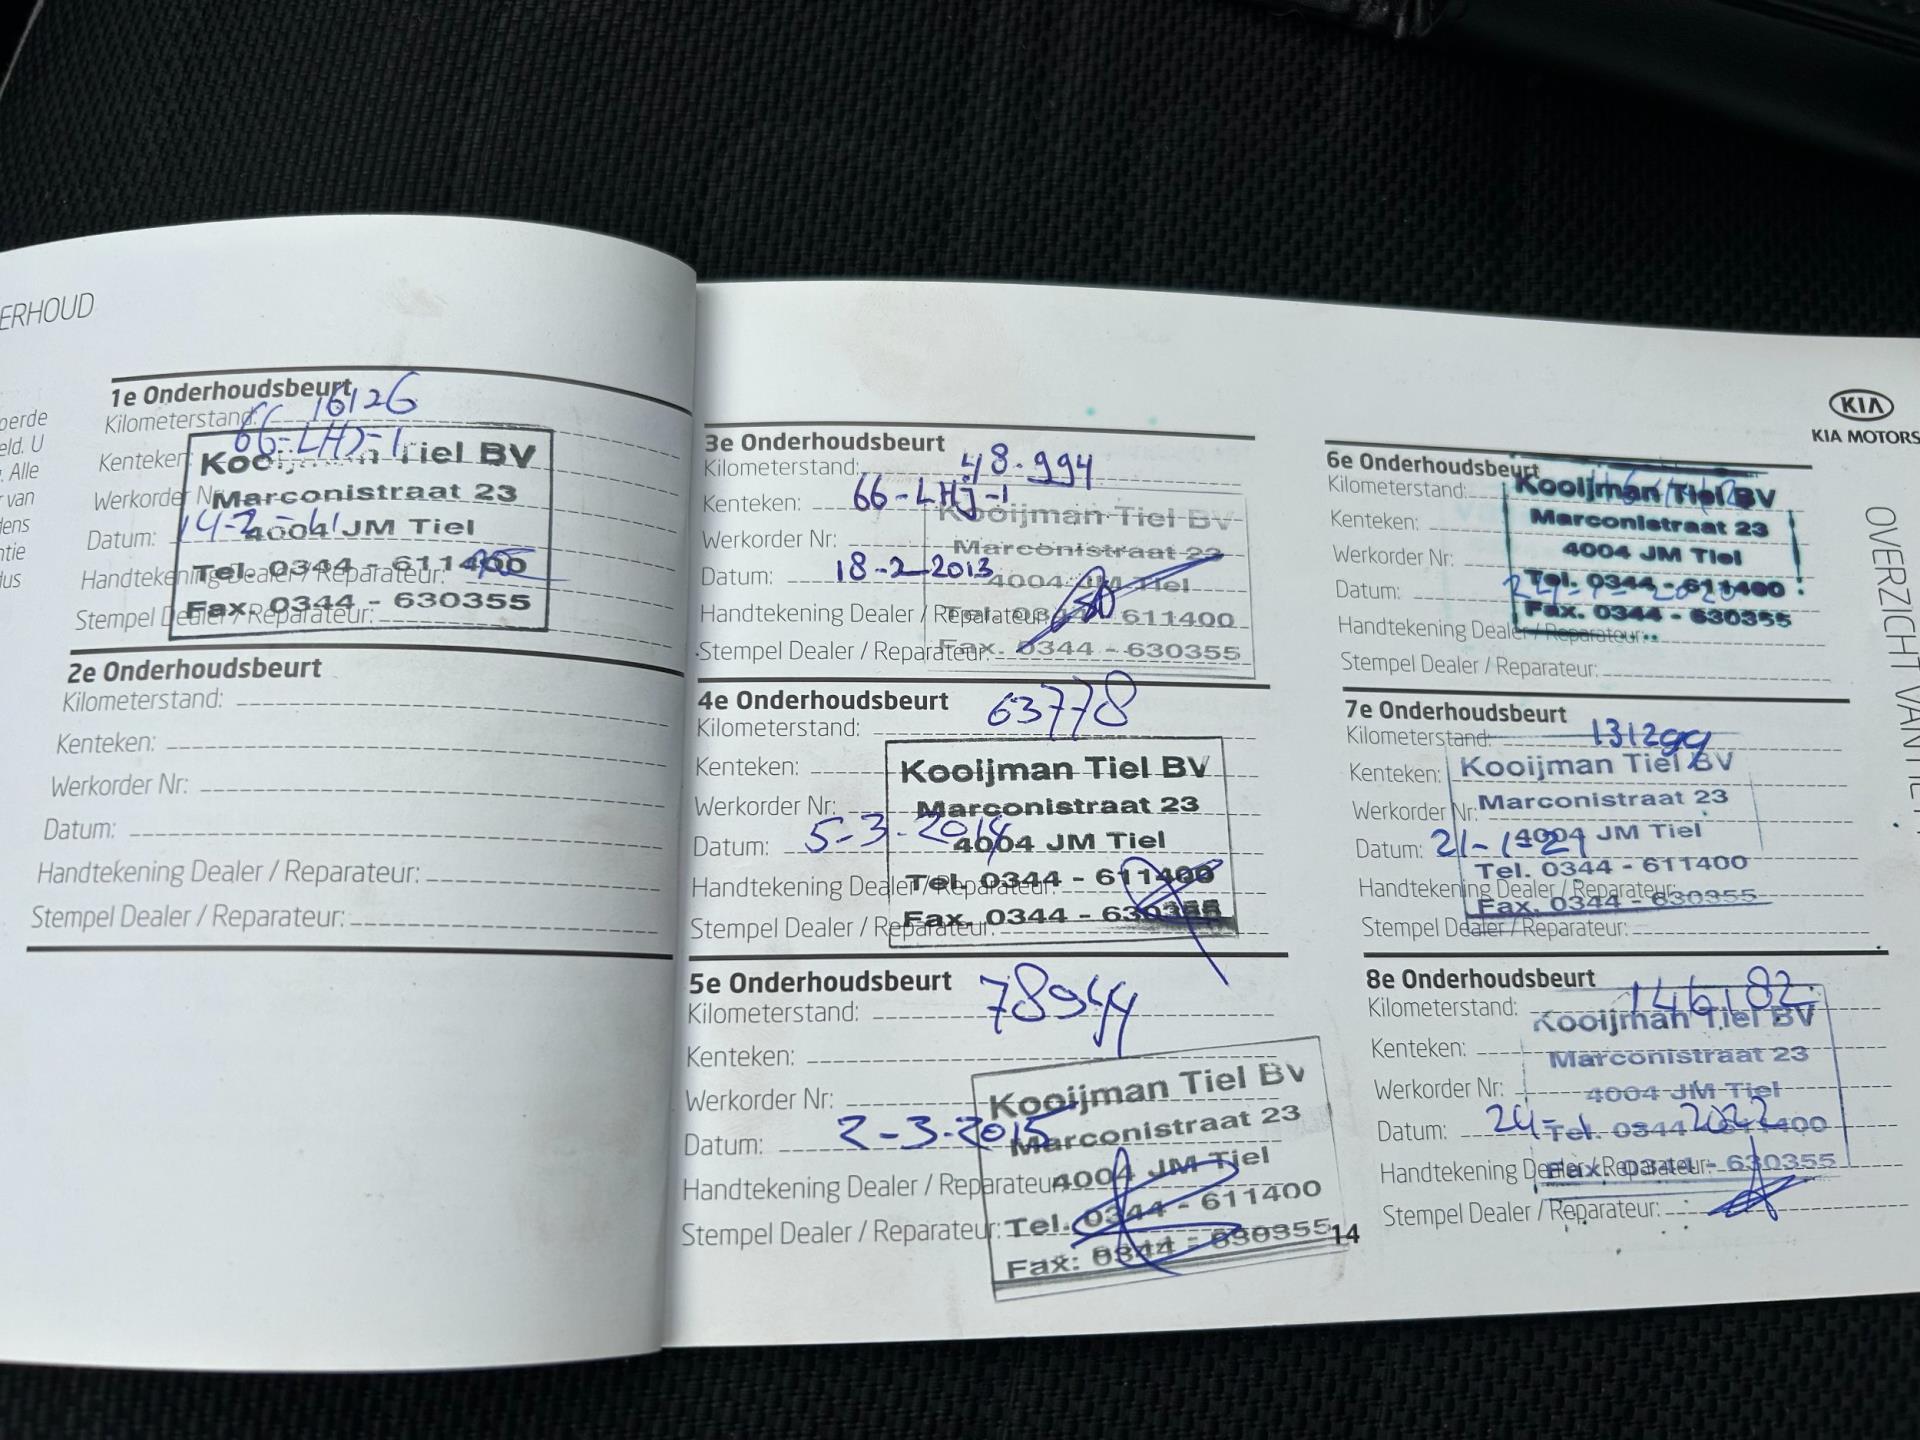 ERHOUD
oerde
eld. U
. Alle
van
dens
ntie
dus
1e Onderhoudsbeurt
Kilometerstand: 16126
Kenteken: 66-LHJ-1
Werkorder Nr:
Datum: 14-2-11
Handtekening Dealer / Reparateur:
Stempel Dealer / Reparateur:
Kooijman Tiel BV
Marconistraat 23
4004 JM Tiel
Tel. 0344 - 611400
Fax. 0344 - 630355
2e Onderhoudsbeurt
Kilometerstand:
Kenteken:
Werkorder Nr:
Datum:
Handtekening Dealer / Reparateur:
Stempel Dealer / Reparateur:
3e Onderhoudsbeurt
Kilometerstand: 48.994
Kenteken: 66-LHJ-1
Werkorder Nr:
Datum: 18-2-2013
Handtekening Dealer / Reparateur:
Stempel Dealer / Reparateur:
Kooijman Tiel BV
Marconistraat 23
4004 JM Tiel
Tel. 0344 - 611400
Fax. 0344 - 630355
4e Onderhoudsbeurt
Kilometerstand: 63778
Kenteken:
Werkorder Nr:
Datum: 5-3-2014
Handtekening Dealer / Reparateur:
Stempel Dealer / Reparateur:
Kooijman Tiel BV
Marconistraat 23
4004 JM Tiel
Tel. 0344 - 611400
Fax. 0344 - 630355
5e Onderhoudsbeurt
Kilometerstand: 78944
Kenteken:
Werkorder Nr:
Datum: 2-3-2015
Handtekening Dealer / Reparateur:
Stempel Dealer / Reparateur:
Kooijman Tiel BV
Marconistraat 23
4004 JM Tiel
Tel. 0344 - 611400
Fax: 0344 - 630355
14
6e Onderhoudsbeurt
Kilometerstand:
Kenteken:
Werkorder Nr:
Datum:
Handtekening Dealer / Reparateur:
Stempel Dealer / Reparateur:
Kooijman Tiel BV
Marconistraat 23
4004 JM Tiel
Tel. 0344 - 611400
Fax. 0344 - 630355
7e Onderhoudsbeurt
Kilometerstand: 131299
Kenteken:
Werkorder Nr:
Datum: 21-1-21
Handtekening Dealer / Reparateur:
Stempel Dealer / Reparateur:
Kooijman Tiel BV
Marconistraat 23
4004 JM Tiel
Tel. 0344 - 611400
Fax. 0344 - 630355
8e Onderhoudsbeurt
Kilometerstand: 146182
Kenteken:
Werkorder Nr:
Datum: 24- 2022
Handtekening Dealer / Reparateur:
Stempel Dealer / Reparateur:
Kooijman Tiel BV
Marconistraat 23
4004 JM Tiel
Tel. 0344 - 611400
Fax. 0344 - 630355
KIA
KIA MOTORS
OVERZICHT VAN